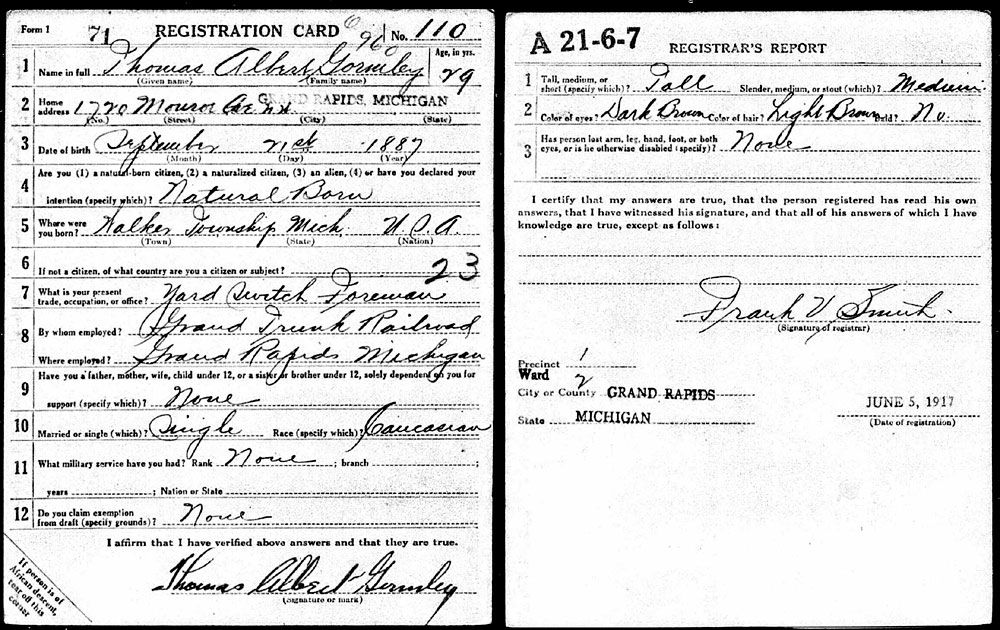 Form 1 71 REGISTRATION CARD No. 110
1 Name in full Thomas Albert Gormley Age, in yrs. 29
(Given name) (Family name)
2 Home address 1720 Monroe Av N.W. GRAND RAPIDS, MICHIGAN
(No.) (Street) (City) (State)
3 Date of birth September 21st 1887
(Month) (Day) (Year)
4 Are you (1) a natural-born citizen, (2) a naturalized citizen, (3) an alien, (4) or have you declared your
intention (specify which)? Natural Born
5 Where were you born? Walker Township Mich. U.S.A.
(Town) (State) (Nation)
6 If not a citizen, of what country are you a citizen or subject? 23
7 What is your present trade, occupation, or office? Yard Switch Foreman
8 By whom employed? Grand Trunk Railroad
Where employed? Grand Rapids Michigan
9 Have you a father, mother, wife, child under 12, or a sister or brother under 12, solely dependent on you for
support (specify which)? None
10 Married or single (which)? Single Race (specify which)? Caucasian
11 What military service have you had? Rank None ; branch ;
years ; Nation or State
12 Do you claim exemption from draft (specify grounds)? None
I affirm that I have verified above answers and that they are true.
Thomas Albert Gormley
(Signature or mark)
If person is of
African descent,
tear off this
corner
A 21-6-7 REGISTRAR'S REPORT
1 Tall, medium, or short (specify which)? Tall Slender, medium, or stout (which)? Medium
2 Color of eyes? Dark Brown Color of hair? Light Brown Bald? No
3 Has person lost arm, leg, hand, foot, or both eyes, or is he otherwise disabled (specify)? None
I certify that my answers are true, that the person registered has read his own
answers, that I have witnessed his signature, and that all of his answers of which I have
knowledge are true, except as follows:
Frank V Smith
(Signature of registrar)
Precinct 1
Ward 2
City or County GRAND RAPIDS
State MICHIGAN
JUNE 5, 1917
(Date of registration)